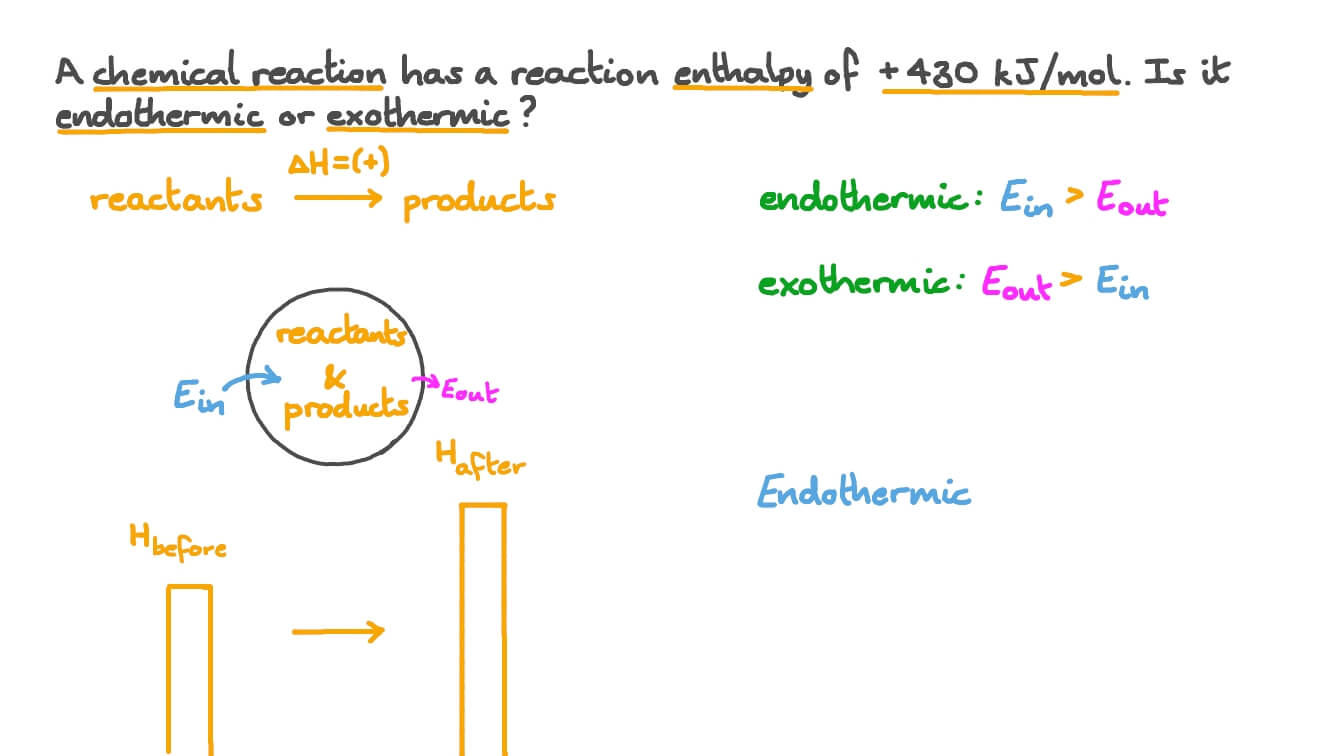 A chemical reaction has a reaction enthalpy of +430 kJ/mol. Is it
endothermic or exothermic?
ΔH=(+)
reactants → products
endothermic: Ein > Eout
exothermic: Eout > Ein
reactants
&
products
Ein
Eout
Hafter
Hbefore
Endothermic